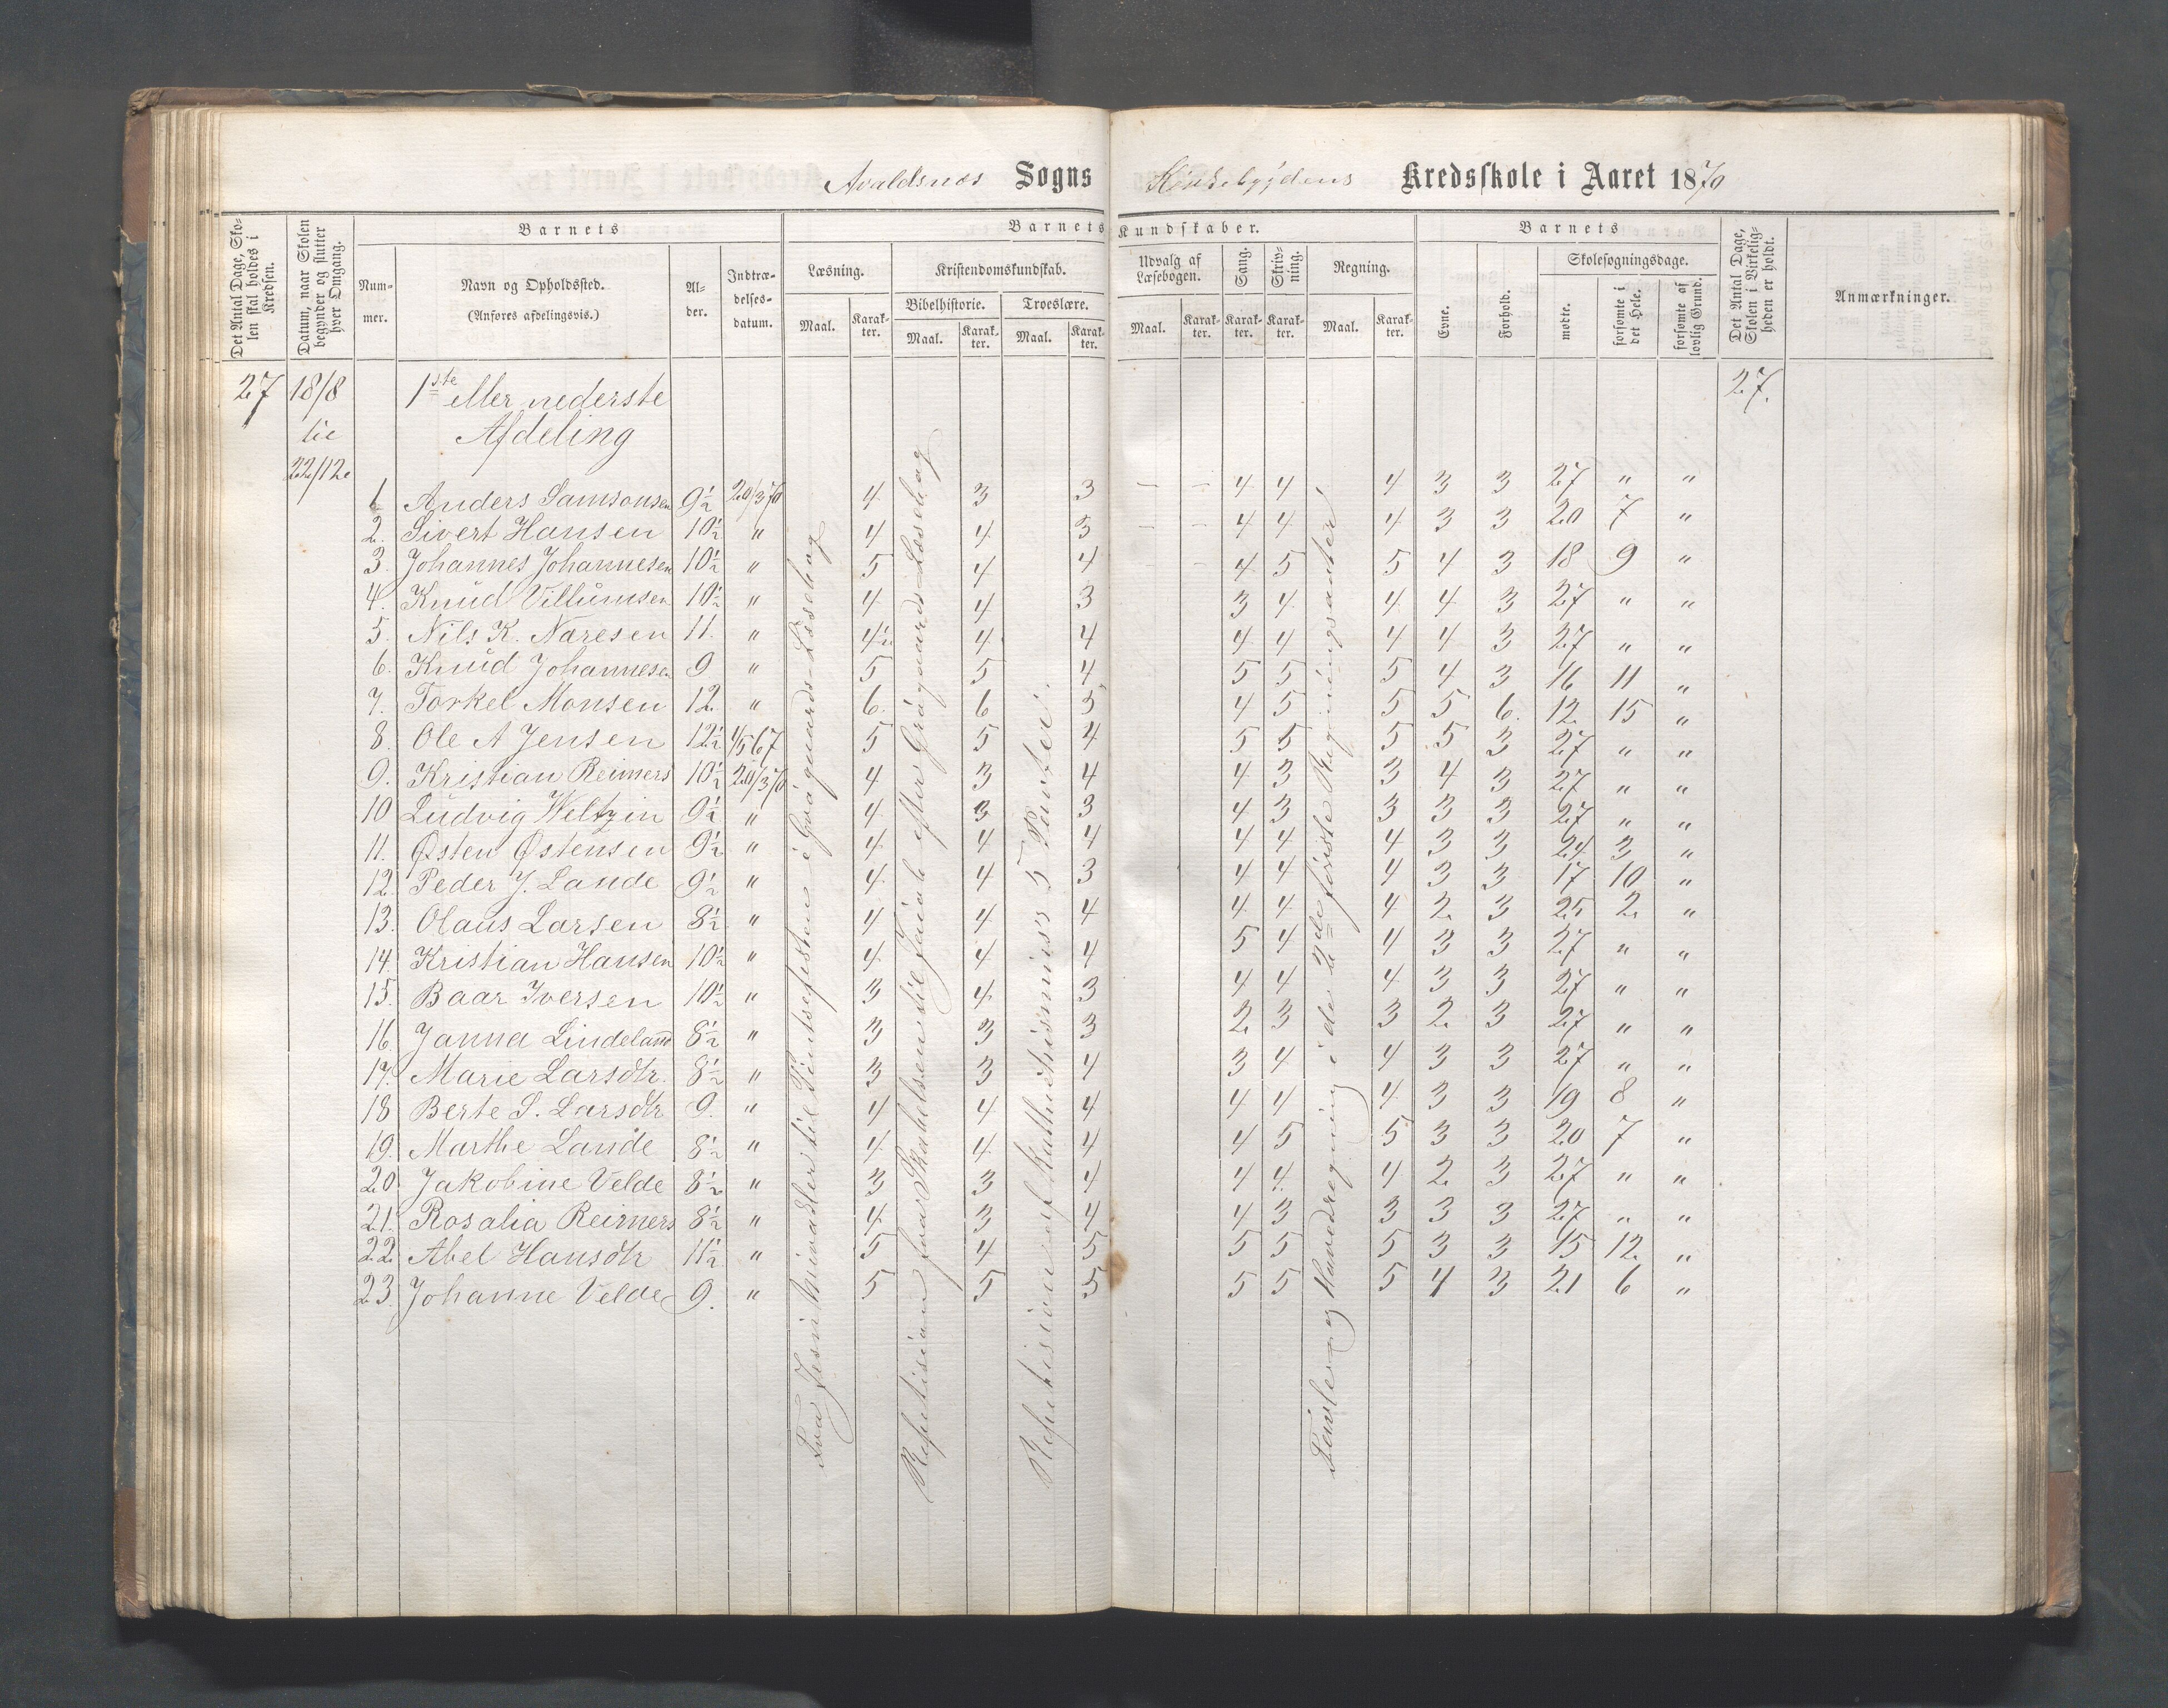 Avaldsnes Sogns
Kredsskole i Aaret 1870
Det Antal Dage, Skolen skal holdes i Kredsen.
Datum, naar Skolen begynder og slutter hver Omgang.
Barnets
Nummer.
Navn og Opholdssted.
(Anføres afdelingsvis.)
Alder.
Indtrædelsesdatum.
Barnets Kundskaber.
Læsning.
Maal. Karakter.
Kristendomskundskab.
Bibelhistorie. Troeslære.
Maal. Karakter. Maal. Karakter.
Udvalg af Læsebogen.
Maal. Karakter.
Sang. Karakter.
Skrivning. Karakter.
Regning.
Maal. Karakter.
Barnets
Evne. Forhold.
Skolesøgningsdage.
mødte. forsømte i det Hele. forsømte af lovlig Grund.
Det Antal Dage, Skolen i Virkeligheden er holdt.
Anmærkninger.
27 18/8 1ste eller nederste 27.
til Afdeling
22/12.
1 Anders Samsonsen 9½ 20/3 70 4 3 3 – – 4 4 4 3 3 27 " "
2. Sivert Hansen 10½ " 4 4 3 – – 4 4 4 3 3 20 7 "
3. Johannes Johannesen 10½ " 5 4 4 – – 4 5 5 4 3 18 9 "
4. Knud Villumsen 10½ " 4 4 3 3 4 4 4 3 27 " "
5. Nils K. Naresen 11. " 4½ 4 4 4 4 4 4 3 27 " "
6. Knud Johannesen 9 " 5 5 4 5 5 5 4 3 16 11 "
7. Torkel Monsen 12. " 6. 6 5 4 5 5 5 6. 12 15 "
8. Ole A Jensen 12½ 4/5 67 5 5 4 5 5 5 5 3 27 " "
9. Kristian Reimers 10½ 20/3 70 4 3 4 4 3 3 4 3 27 " "
10 Ludvig Weltzin 9½ " 4 3 3 4 3 3 3 3 27 " "
11. Østen Østensen 9½ " 4 4 4 4 4 4 3 3 24 3 "
12. Peder J. Lande 9½ " 4 4 3 4 4 4 3 3 17 10 "
13. Olaus Larsen 8½ " 4 4 4 4 4 4 2. 3 25 2. "
14. Kristian Hansen 10½ " 4 4 4 5 4 4 3 3 27 " "
15. Baar Iversen 10½ " 3 4 3 4 4 4 3 3 27 " "
16 Janna Lindeland 8½ " 3 3 3 2. 3 3 2. 3 27 " "
17. Marie Larsdtr. 8½ " 3 3 4 3 4 4 3 3 27 " "
18 Berte S. Larsdtr 9. " 4 4 4 4 4 4 3 3 19 8 "
19. Marthe Lande 8½ " 4 4 4 4 5 5 3 3 20 7 "
20. Jakobine Velde 8½ " 3 3 4 4 4 4 2 3 27 " "
21. Rosalia Reimers 8½ " 4 3 4 4 3 3 3 3 27 " "
22. Abel Hansdtr 11½ " 5 4 5 5 5 5 3 3 15 12. "
23. Johanne Velde 9. " 5 5 5 5 5 5 4 3 21 6 "
Fra Jesu Mirakler til Pintsefesten i Grøgaards Læsebog
Repetision fra Skabelsen til Juda efter Grøgaards Læsebog
Repetision af Kathekismus's 5 Parter.
Tavle- og Hovedregning i de 2de første Regningsarter